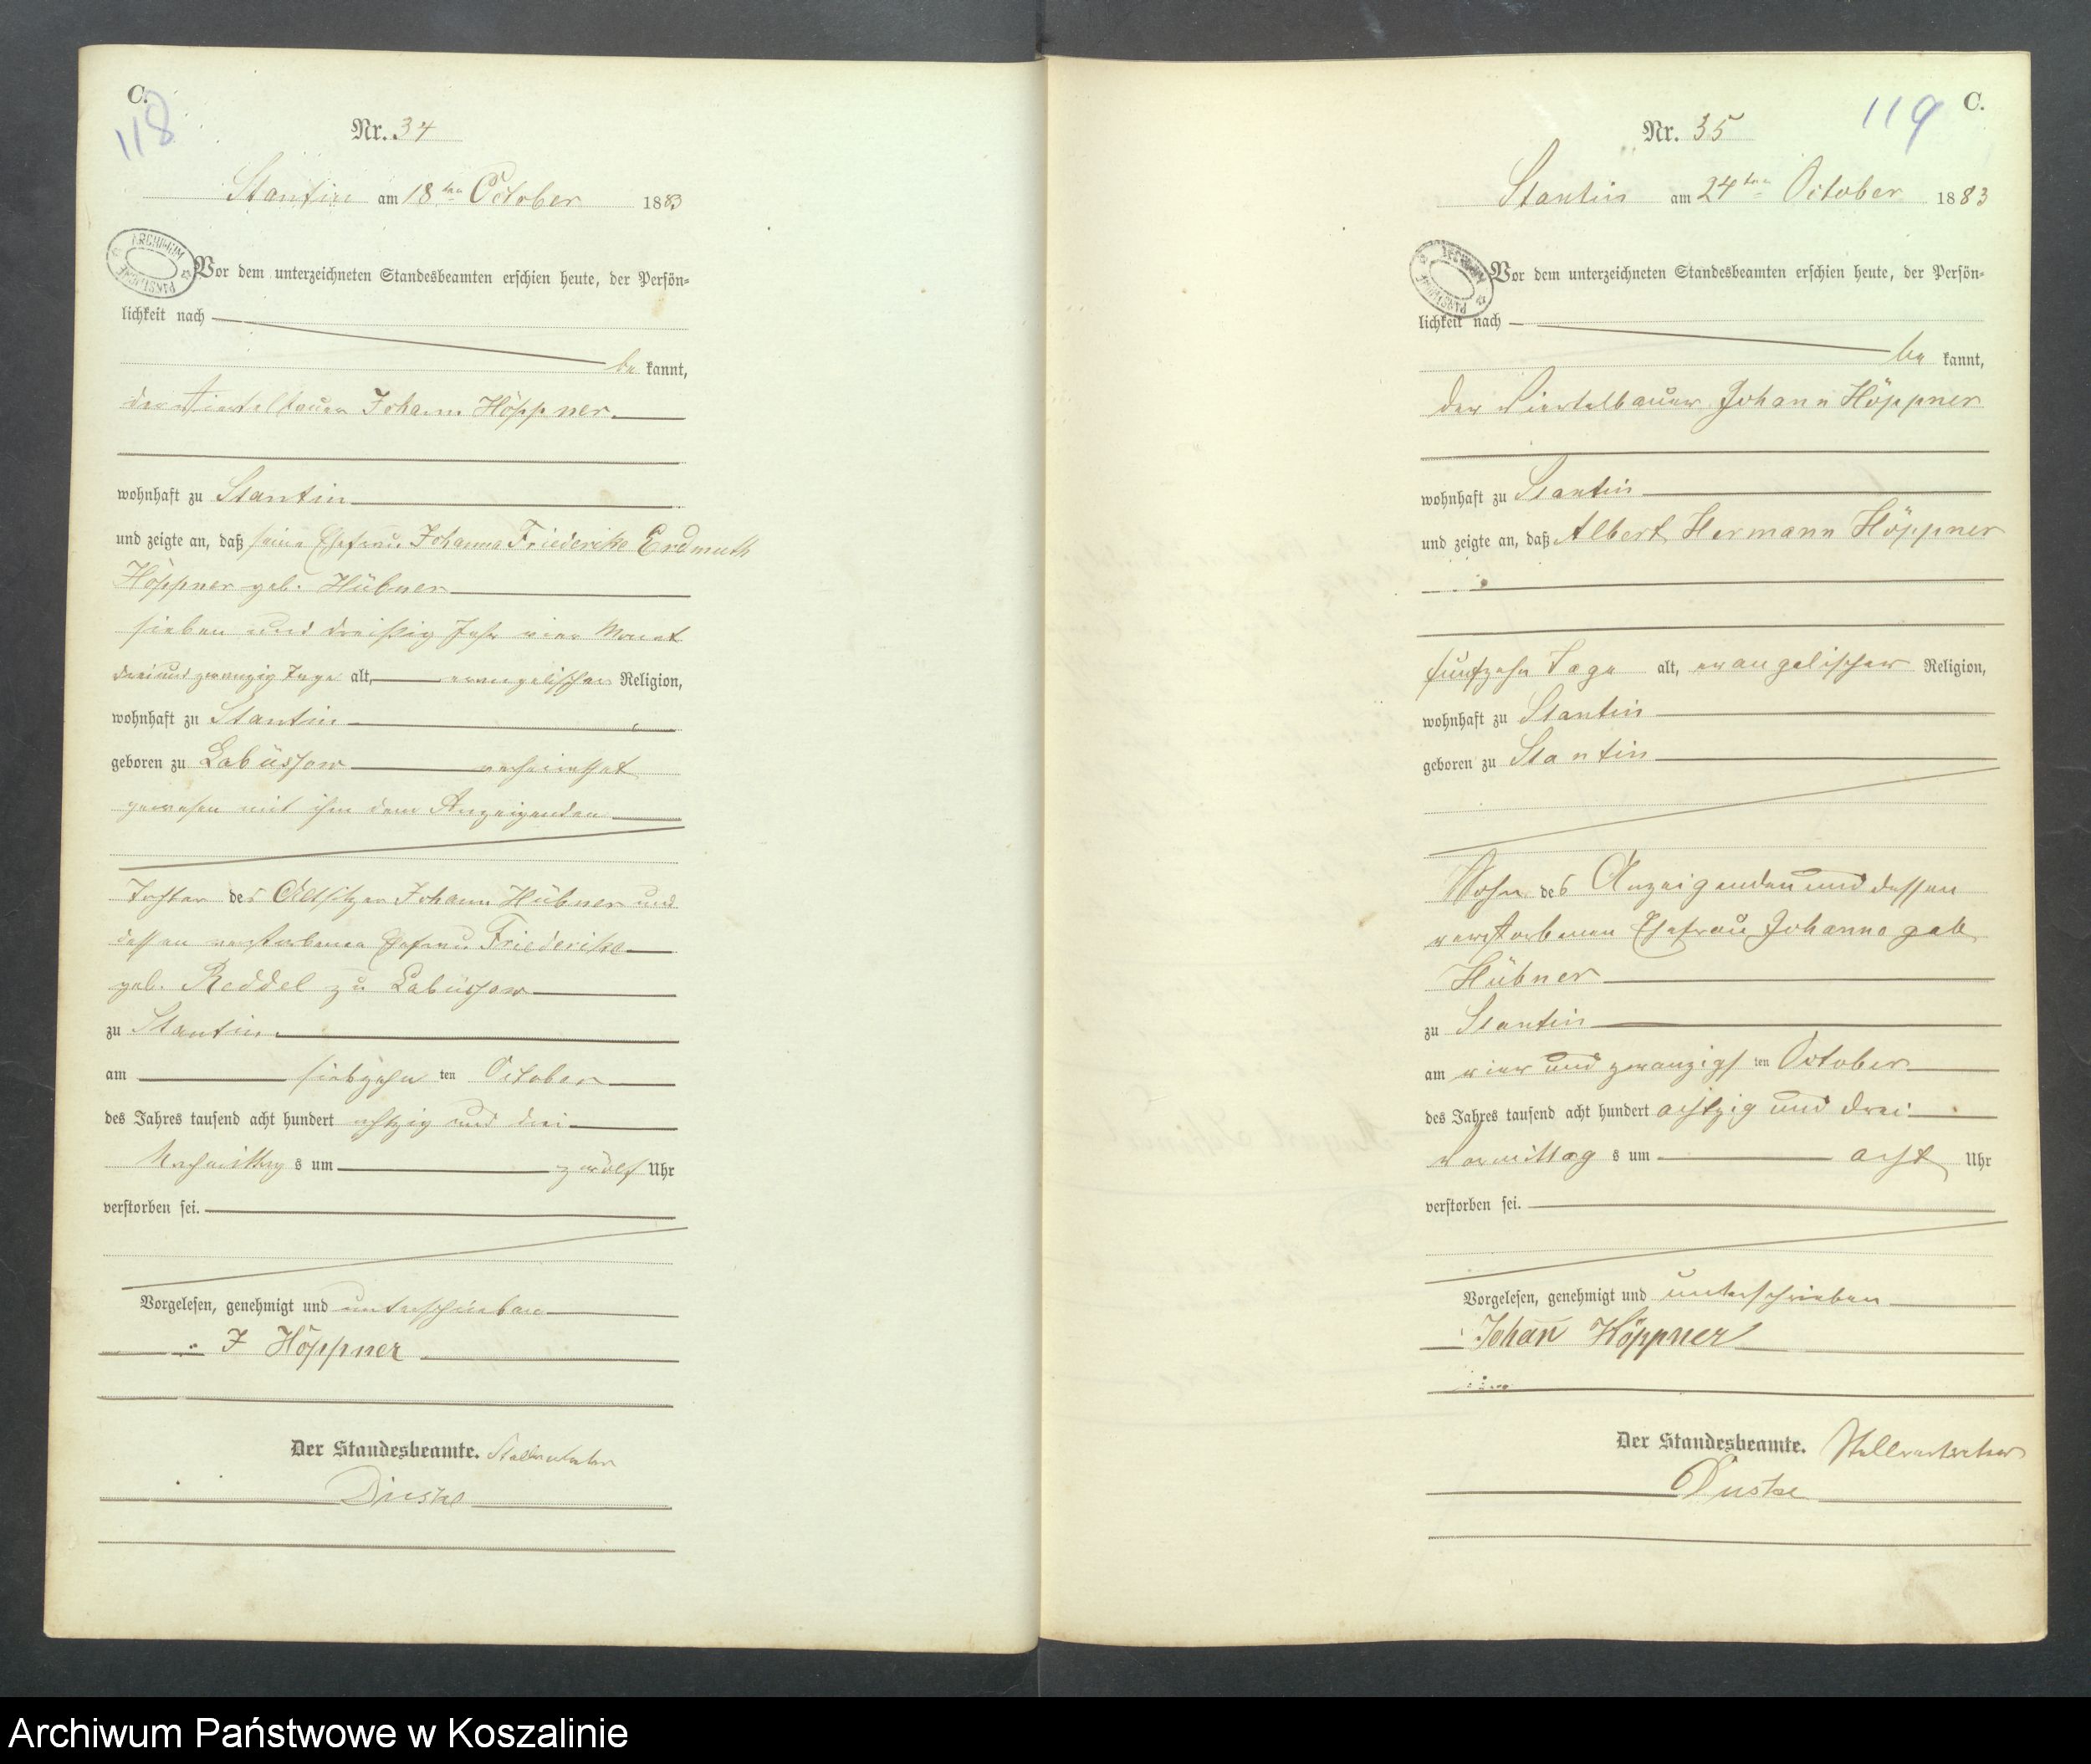 C.
118
Nr. 34
Stantin am 18ten October 1883
ARCHIWUM PAŃSTWOWE
Vor dem unterzeichneten Standesbeamten erschien heute, der Persön-
lichkeit nach
be kannt,
der Viertelbauer Johann Höppner
wohnhaft zu Stantin
und zeigte an, daß seine Ehefrau Johanna Friedericke Erdmuth
Höppner geb. Hübner
sieben und dreißig Jahr vier Monat
drei und zwanzig Tage alt, evangelischer Religion,
wohnhaft zu Stantin
geboren zu Labüssow verheirathet
gewesen mit ihm dem Anzeigenden
Tochter des Altsitzer Johann Hübner und
dessen verstorbenen Ehefrau Friedericke
geb. Reddel zu Labüssow
zu Stantin
am siebzehn ten October
des Jahres tausend acht hundert achtzig und drei
Nachmittag s um zwölf Uhr
verstorben sei.
Vorgelesen, genehmigt und unterschrieben
J Höppner
Der Standesbeamte. Stellvertreter
C.
119
Nr. 35
Stantin am 24ten October 1883
ARCHIWUM PAŃSTWOWE
Vor dem unterzeichneten Standesbeamten erschien heute, der Persön-
lichkeit nach
be kannt,
der Viertelbauer Johann Höppner
wohnhaft zu Stantin
und zeigte an, daß Albert Hermann Höppner
fünfzehn Tage alt, evangelischer Religion,
wohnhaft zu Stantin
geboren zu Stantin
Sohn des Anzeigenden und dessen
verstorbenen Ehefrau Johanna geb
Hübner
zu Stantin
am vier und zwanzigs ten October
des Jahres tausend acht hundert achtzig und drei
Vormittag s um acht Uhr
verstorben sei.
Vorgelesen, genehmigt und unterschrieben
Johan̄ Höppner
Der Standesbeamte. Stellvertreter
Archiwum Państwowe w Koszalinie